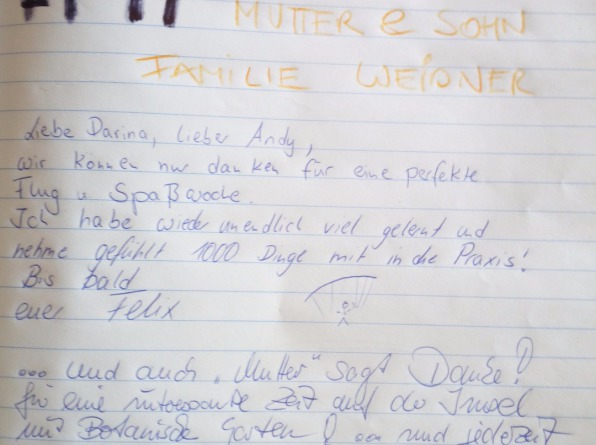 MUTTER & SOHN
FAMILIE WEIDNER
Liebe Darina, lieber Andy,
wir können nur danken für eine perfekte
Flug u Spaßwoche.
Ich habe wieder unendlich viel gelernt und
nehme gefühlt 1000 Dinge mit in die Praxis!
Bis bald
euer Felix
... und auch "Mutter" sagt Danke!
für eine interessante Zeit auf der Insel
mit Botanische Garten! ... und jederzeit